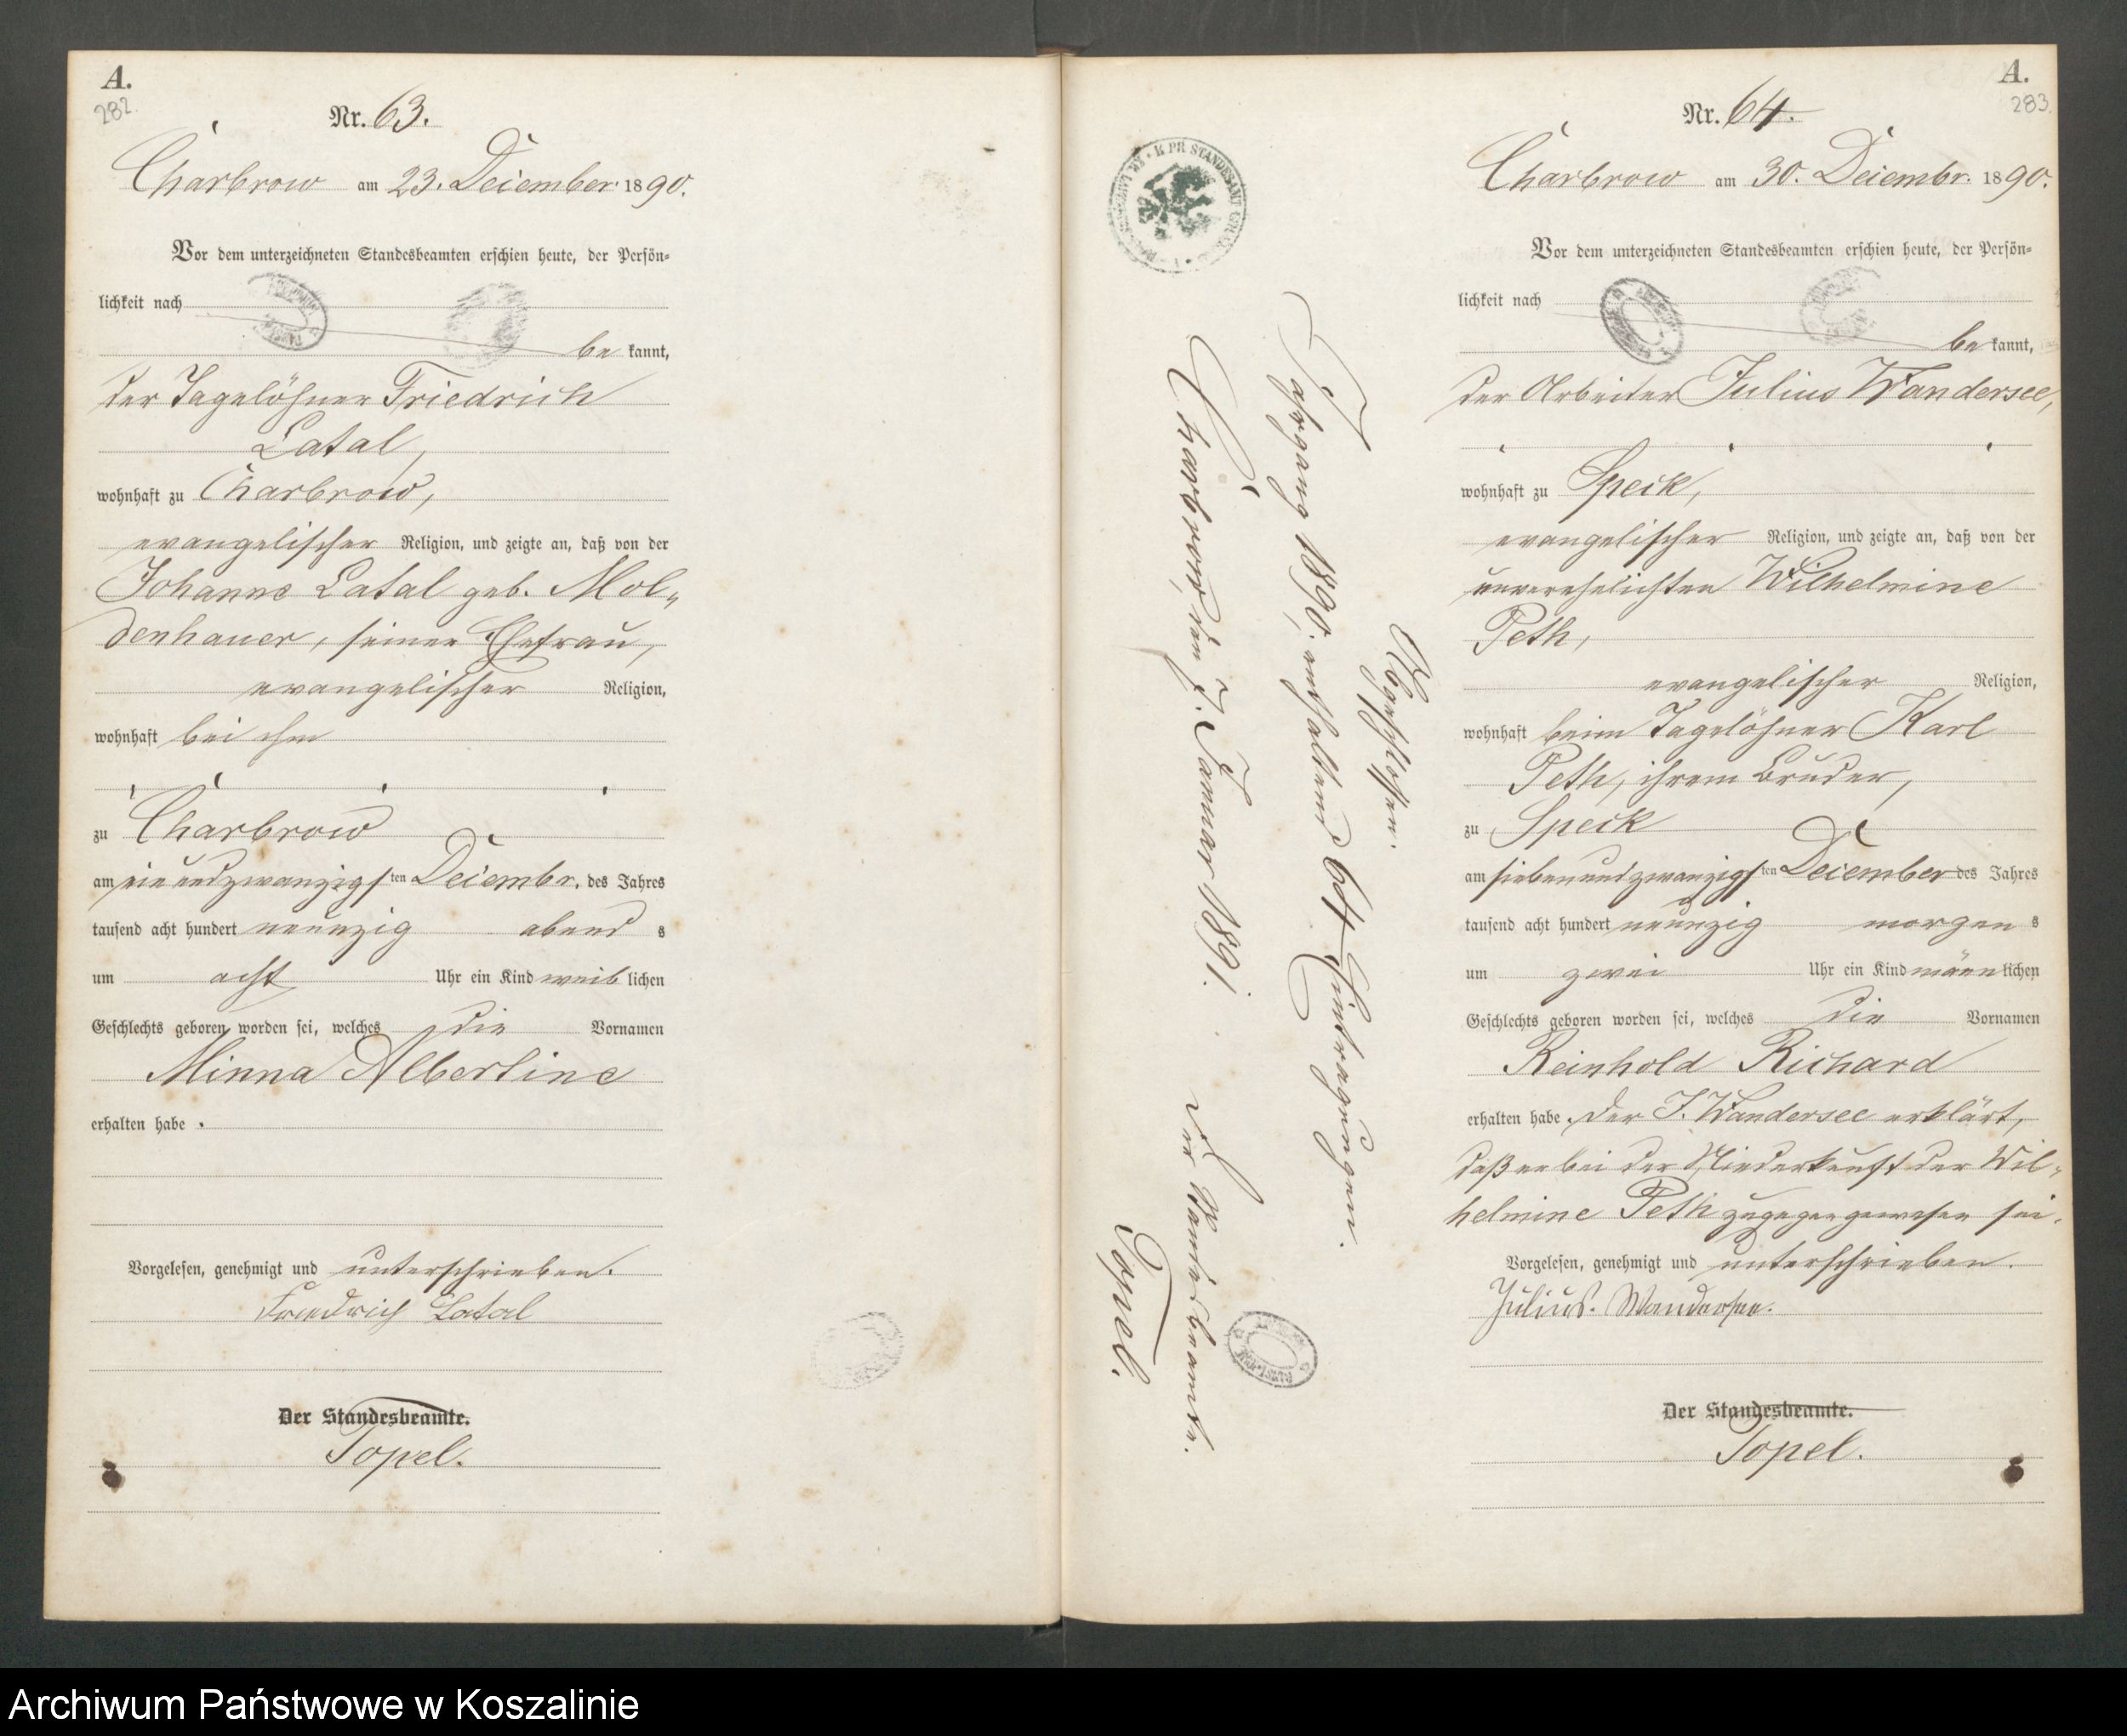 A.
282.
Nr. 63.
Charbrow am 23. December 1890.
Vor dem unterzeichneten Standesbeamten erschien heute, der Persön=
lichkeit nach
be kannt,
der Tagelöhner Friedrich
Latal,
wohnhaft zu Charbrow,
evangelischer Religion, und zeigte an, daß von der
Johanne Latal geb. Mol=
denhauer, seiner Ehefrau,
evangelischer Religion,
wohnhaft bei ihm
zu Charbrow
am einundzwanzigsten Decembr. des Jahres
tausend acht hundert neunzig abend s
um acht Uhr ein Kind weib lichen
Geschlechts geboren worden sei, welches die Vornamen
Minna Albertine
erhalten habe.
Vorgelesen, genehmigt und unterschrieben.
Friedrich Latal
Der Standesbeamte.
Topel.
K PR STANDESAMT
Abgeschlossen.
Jahrgang 1890. enthaltend 64 Eintragungen.
Charbrow, den 7. Januar 1891.
Der Standesbeamte.
Topel.
A.
283.
Nr. 64.
Charbrow am 30. Decembr. 1890.
Vor dem unterzeichneten Standesbeamten erschien heute, der Persön=
lichkeit nach
be kannt,
der Arbeiter Julius Wandersee,
wohnhaft zu Speck,
evangelischer Religion, und zeigte an, daß von der
unverehelichten Wilhelmine
Peth,
evangelischer Religion,
wohnhaft beim Tagelöhner Karl
Peth, ihrem Bruder,
zu Speck
am siebenundzwanzigsten December des Jahres
tausend acht hundert neunzig morgen s
um zwei Uhr ein Kind männ lichen
Geschlechts geboren worden sei, welches die Vornamen
Reinhold Richard
erhalten habe. Der J. Wandersee erklärt,
daß er bei der Niederkunft der Wil=
helmine Peth zugegen gewesen sei.
Vorgelesen, genehmigt und unterschrieben.
Julius. Wandersee.
Der Standesbeamte.
Topel.
Archiwum Państwowe w Koszalinie